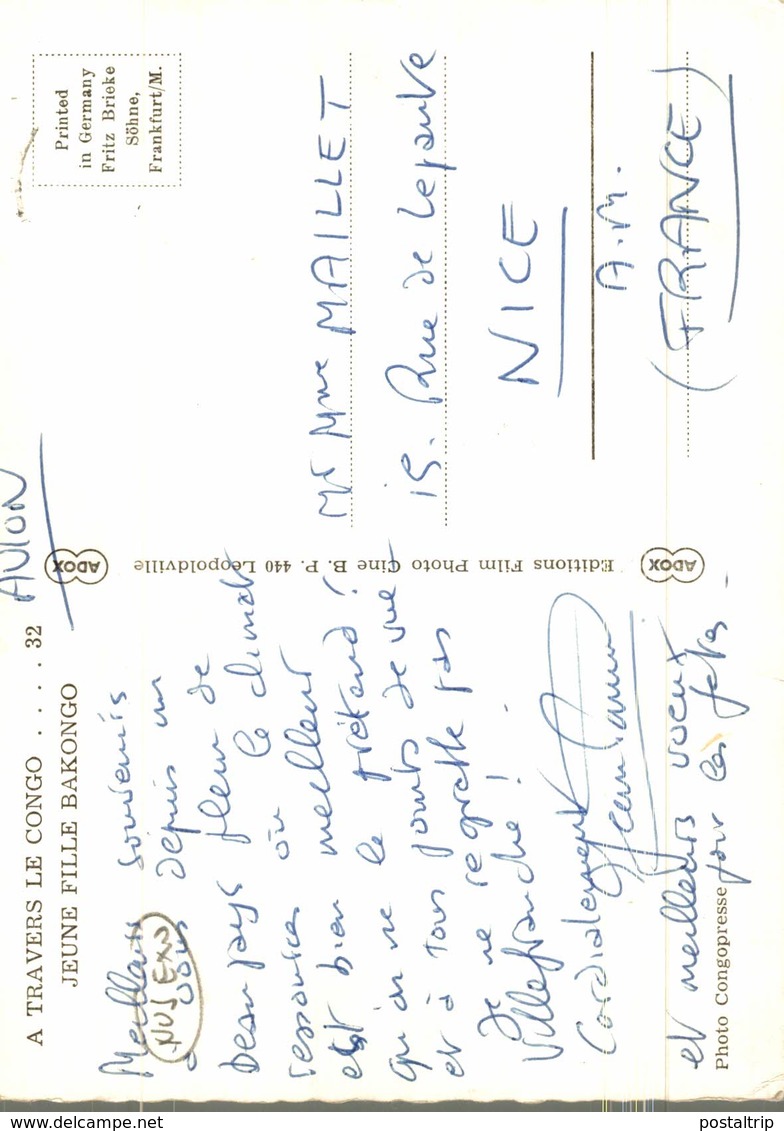 A TRAVERS LE CONGO . . . . 32
JEUNE FILLE BAKONGO
AVION
Meilleurs souvenirs
à vous depuis un
NUS EXO
beau pays plein de
ressources où le climat
est bien meilleur
qu'on ne le prétend!
et à tous points de vue
Je ne regrette pas
Villefranche!
Cordialement
et meilleurs voeux
pour les fêtes
Photo Congopresse
ADOX
Editions Film Photo Cine B. P. 440 Léopoldville
ADOX
Printed
in Germany
Fritz Brieke
Söhne,
Frankfurt/M.
Mr Mme MAILLET
15. Rue de Lepante
NICE
A.M.
(FRANCE)
www.delcampe.net
postaltrip